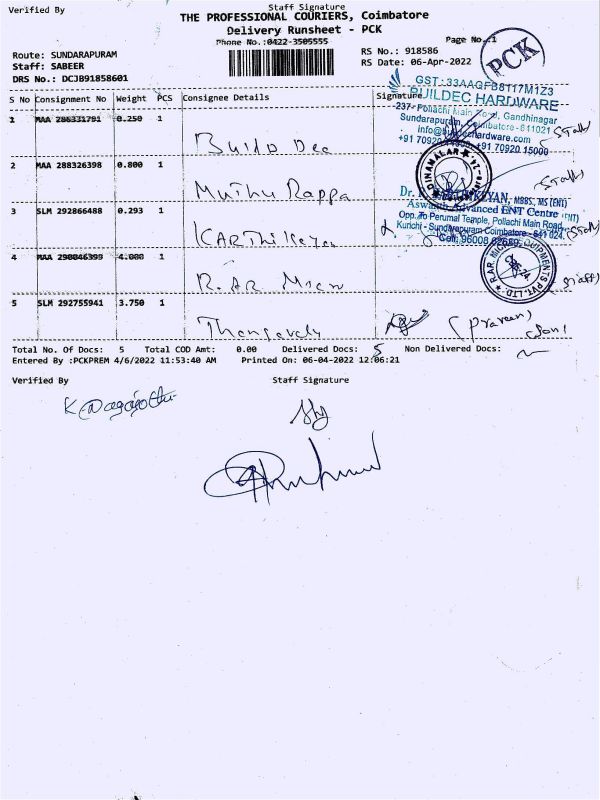 Verified By
Staff Signature
THE PROFESSIONAL COURIERS, Coimbatore
Delivery Runsheet - PCK
Phone No.:0422-3505555
Page No.:1
PCK
Route: SUNDARAPURAM
Staff: SABEER
DRS No.: DCJB91858601
RS No.: 918586
RS Date: 06-Apr-2022
S No Consignment No Weight PCS Consignee Details Signature
GST :33AAGFB8117M1Z3
BUILDEC HARDWARE
237- Pollachi Main Road, Gandhinagar
Sundarapuram, Coimbatore - 641021
+91 70920 15000
1 MAA 286331791 0.250 1
Build Dec
(Staff)
2 MAA 288326398 0.800 1
Muthu Rappa
DINAMALAR
(Staff)
3 SLM 292866488 0.293 1
KARThiKeyan
MBBS, MS (ENT)
Advanced ENT Centre
Opp. To Perumal Temple, Pollachi Main Road,
Kurichi - Sundarapuram Coimbatore - 641 024.
(Staff)
4 MAA 290046399 4.000 1
R. AR Micro
(Staff)
5 SLM 292755941 3.750 1
Thangavelu
(Praveen)
(Son)
Total No. Of Docs: 5 Total COD Amt: 0.00 Delivered Docs: 5 Non Delivered Docs:
Entered By :PCKPREM 4/6/2022 11:53:40 AM Printed On: 06-04-2022 12:06:21
Verified By
Staff Signature